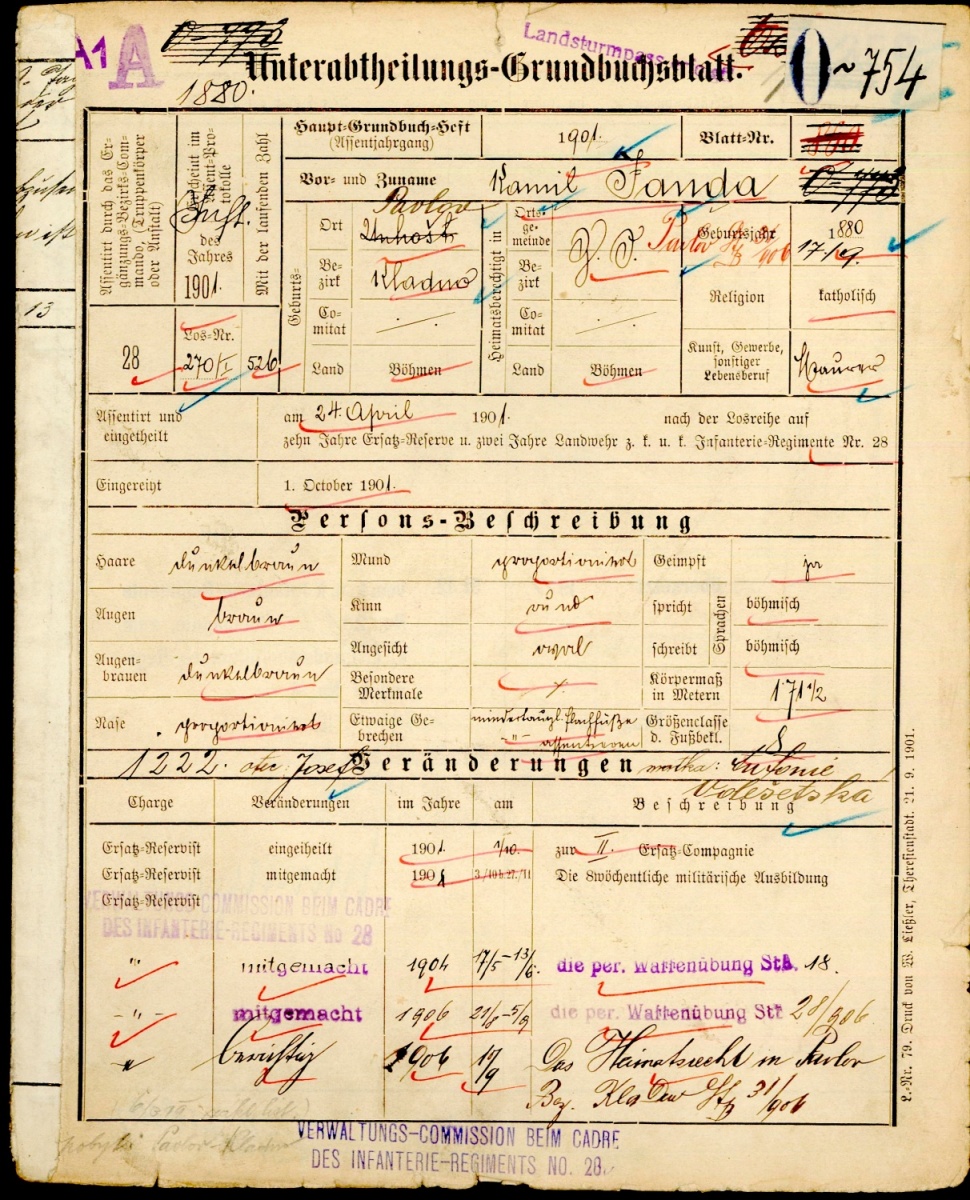 A1 A
Landsturmpass
Unterabtheilungs-Grundbuchsblatt.
0~754
1880.
Assentirt durch das Ergänzungs-Bezirks-Commando, (Truppenkörper oder Anstalt)
28
Erscheint im Assent-Protokolle
des
Jahres
1901.
Mit der laufenden Zahl
Los-Nr.
270/I
526
Haupt-Grundbuch-Heft
(Assentjahrgang)
1901.
Blatt-Nr.
Vor- und Zuname
Kamil Fanda
Geburts-
Ort
Pavlov
Unhošt
Bezirk
Kladno
Comitat
Land
Böhmen
Heimatsberechtigt in
Ortsgemeinde
Bezirk
G. J.
Pavlov
Comitat
Land
Böhmen
Geburtsjahr
1880
17./9.
Religion
katholisch
Kunst, Gewerbe,
sonstiger
Lebensberuf
Maurer
Assentirt und
eingetheilt
am 24 April 1901. nach der Losreihe auf
zehn Jahre Ersatz-Reserve u. zwei Jahre Landwehr z. k. u. k. Infanterie-Regimente Nr. 28
Eingereiht
1. October 1901.
Persons-Beschreibung
Haare dunkelbraun
Mund proportionirt
Geimpft ja
Augen braun
Kinn rund
spricht
Sprachen
böhmisch
Augenbrauen dunkelbraun
Angesicht oval
schreibt böhmisch
Besondere
Merkmale
Körpermaß
in Metern
1·71 1/2
Nase proportionirt
Etwaige Gebrechen
mindertaugl. Plachfüße
-"- assentieren
Größenclasse
d. Fußbekl.
8
1222. otec: Josef
Veränderungen
matka: Antonie
Volešetska
Charge
Veränderungen
im Jahre
am
Beschreibung
Ersatz-Reservist eingeiheilt 1901. 1/10. zur II. Ersatz-Compagnie
Ersatz-Reservist mitgemacht 1901 3./10 b. 27./11 Die 8wöchentliche militärische Ausbildung
Ersatz-Reservist
VERWALTUNGS-COMMISSION BEIM CADRE
DES INFANTERIE-REGIMENTS No 28
" mitgemacht 1904 17/5-13/6. die per. Waffenübung Stb. 18.
-"- mitgemacht 1906 die per. Waffenübung Stb 28/906
" berichtig 1906 17/9 Das Heimatsrecht in Pavlov
Bez. Kladno 31/906
VERWALTUNGS-COMMISSION BEIM CADRE
DES INFANTERIE-REGIMENTS NO. 28.
L.-Nr. 79. Druck von W. Ließler, Theresienstadt. 21. 9. 1901.
13